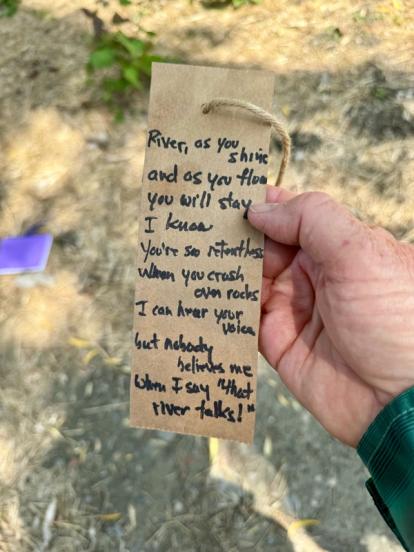 River, as you
shine
and as you flow
you will stay
I know
You're so relentless
when you crash
over rocks
I can hear your
voice
but nobody
believes me
when I say "that
river talks!"